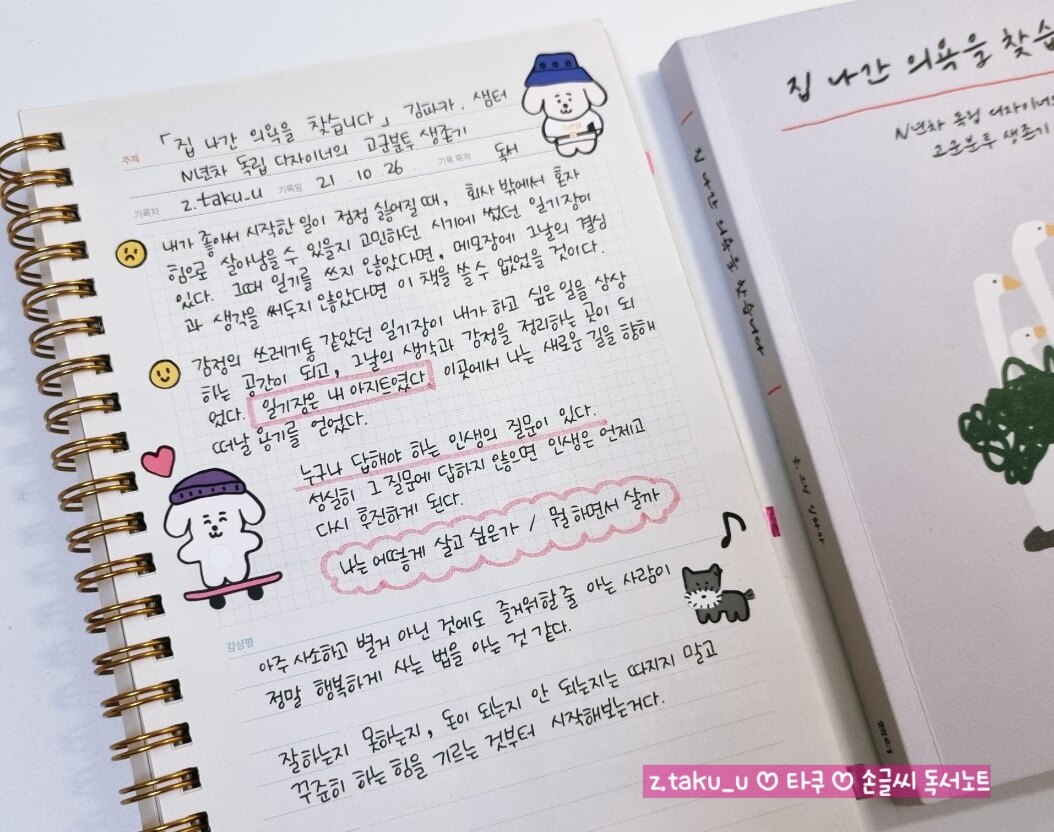 주제 「집 나간 의욕을 찾습니다」 김파카. 샘터
N년차 독립 디자이너의 고군분투 생존기
기록자 z.taku_u 기록일 21.10.26 기록 목적 독서
내가 좋아서 시작한 일이 점점 싫어질 때, 회사 밖에서 혼자
힘으로 살아남을 수 있을지 고민하던 시기에 썼던 일기장이
있다. 그때 일기를 쓰지 않았다면, 메모장에 그날의 결심
과 생각을 써두지 않았다면 이 책을 쓸 수 없었을 것이다.
감정의 쓰레기통 같았던 일기장이 내가 하고 싶은 일을 상상
하는 공간이 되고, 그날의 생각과 감정을 정리하는 곳이 되
었다. 일기장은 내 아지트였다. 이곳에서 나는 새로운 길을 향해
떠날 용기를 얻었다.
누구나 답해야 하는 인생의 질문이 있다.
성실히 그 질문에 답하지 않으면 인생은 언제고
다시 후진하게 된다.
나는 어떻게 살고 싶은가 / 뭘 하면서 살까
감상평
아주 사소하고 별거 아닌 것에도 즐거워할 줄 아는 사람이
정말 행복하게 사는 법을 아는 것 같다.
잘하는지 못하는지, 돈이 되는지 안 되는지는 따지지 말고
꾸준히 하는 힘을 기르는 것부터 시작해보는거다.
집 나간 의욕을 찾습
N년차 독립 디자이너의
고군분투 생존기
집 나간 의욕을 찾습니다
z.taku_u ♡ 타쿠 ♡ 손글씨 독서노트